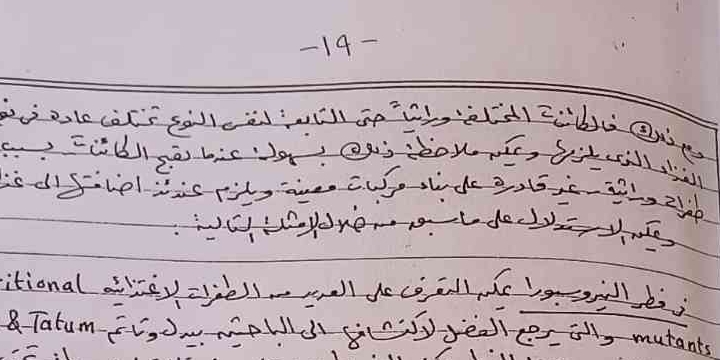 -١٩-
ومع ذلك فالكائنات المختلفة وراثياً حتى التابعة لنفس النوع تختلف عادة فى نو
الغذاء الذى يلزمها ويمكن ملاحظة ذلك بسهولة عندما تصبح الكائنات بسبب
طفرات وراثية غير قادرة على بناء مركبات معينة ويلزم عندئذ اضافتها الى غذا
ويمكن الاستدلال على ما سبق من خلال الامثلة التالية :
فى فطر النيروسبورا يمكن التعرف على العديد من الطفرات الاغتذائية itional
mutants والتى يرجع الفضل لاكتشافها الى الباحثين بيدل وتاتم & Tatum